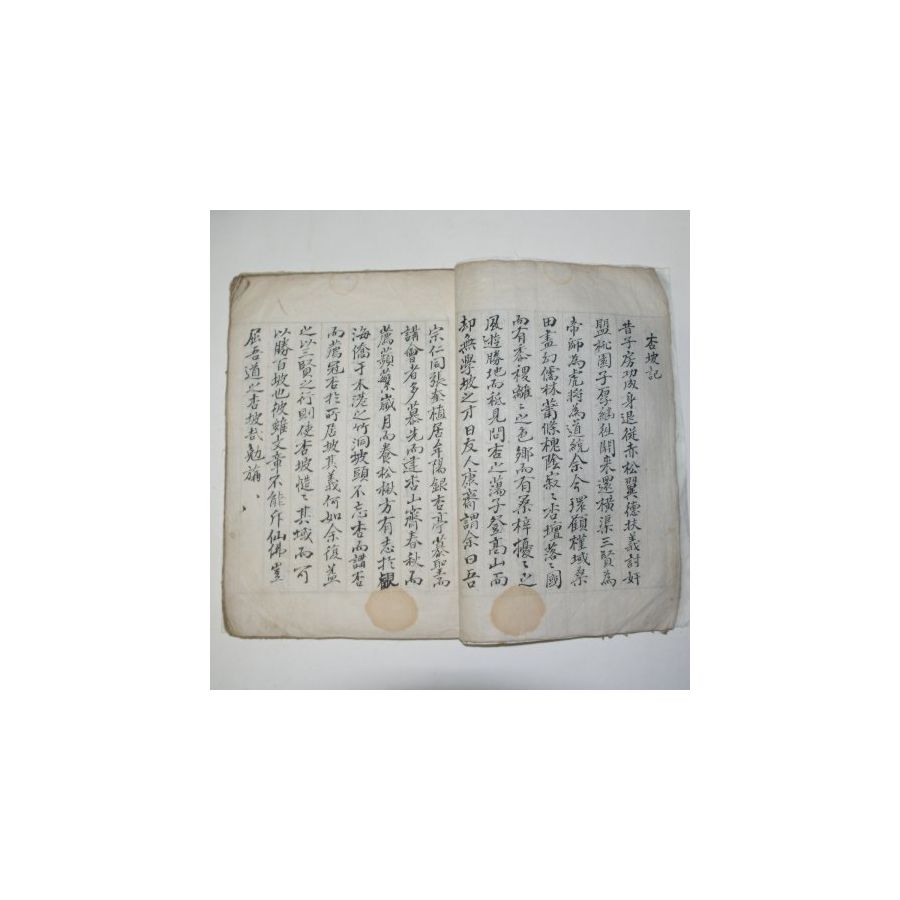 杏坡記
昔子房功成身退從赤松翼德扶義討奸
盟桃園子厚繼往開來還橫渠三賢為
帝師為虎將為道統余今環顧槿域桑
田盡幻儒林蕭條槐陰寂〻杏壇落〻國
而有黍稷離〻之色鄉而有桑梓擾〻之
風遊勝地而秪見問杏之蕩子登高山而
却無學坡之才日友人庚齋謂余曰吾
宗仁同張奎植居牟陽錄杏亭慕聖而
講會者多慕先而建杏山齋春秋而
薦蘋蘩歲月而養松楸方有志於觀
海僑于木港之竹洞坡頭不忘杏而講杏
而藹冠杏於所居坡其義何如余復盖
之以三賢之行則使杏坡慥〻其域而可
以勝百坡也彼雖文章不能斥仙佛豈
屈吾道之杏坡哉勉旃